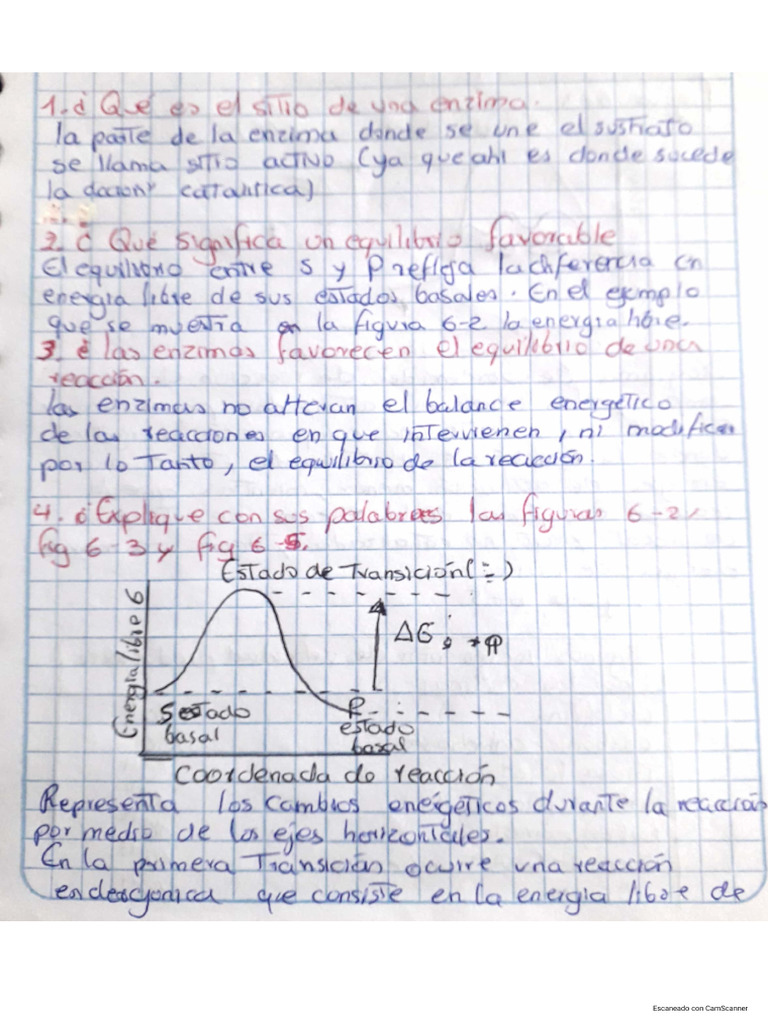 1. ¿ Qué es el sitio de una enzima.
la parte de la enzima donde se une el sustrato
se llama sitio activo (ya que ahí es donde sucede
la catalitica)
2. ¿ Qué significa un equilibrio favorable
El equilibrio entre S y P refleja la diferencia en
energía libre de sus estados basales. En el ejemplo
que se muestra en la figura 6-2 la energía libre.
3. ¿ las enzimas favorecen el equilibrio de una
reacción.
las enzimas no alteran el balance energético
de las reacciones en que intervienen, ni modifican
por lo Tanto, el equilibrio de la reacción.
4. ¿ Explique con sus palabras las figuras 6-2,
fig 6-3 y fig 6-5.
Estado de Transición (=)
Energía libre G
ΔG
S estado
basal
P
estado
basal
Coordenada de reacción
Representa los cambios energéticos durante la reacción
por medio de los ejes horizontales.
En la primera Transición ocurre una reacción
que consiste en la energia libre de
Escaneado con CamScanner